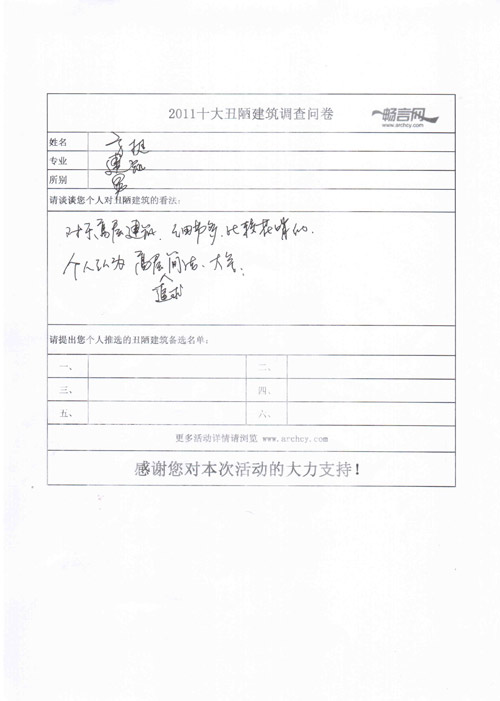 2011十大丑陋建筑调查问卷
畅言网
www.archcy.com
姓名
专业 建筑
所别
请谈谈您个人对丑陋建筑的看法:
对于高层建筑，细节多，比较花哨的.
个人认为 高层追求简洁、大气.
请提出您个人推选的丑陋建筑备选名单:
一、 二、
三、 四、
五、 六、
更多活动详情请浏览 www.archcy.com
感谢您对本次活动的大力支持！